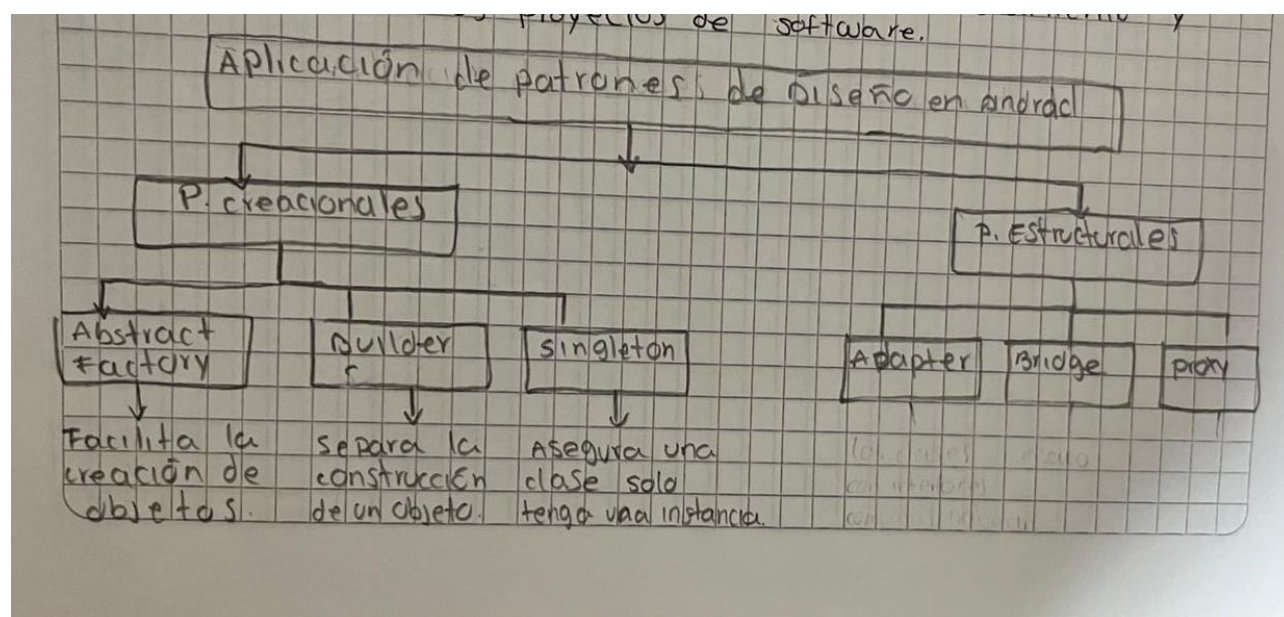 proyectos de software. y
Aplicación de patrones de Diseño en andrad
P. creacionales
P. Estructurales
Abstract
Factory
Builder
singleton
Adapter
Bridge
proxy
Facilita la
creación de
objetos.
separa la
construcción
de un objeto.
Asegura una
clase solo
tenga una instancia.
con interfaces